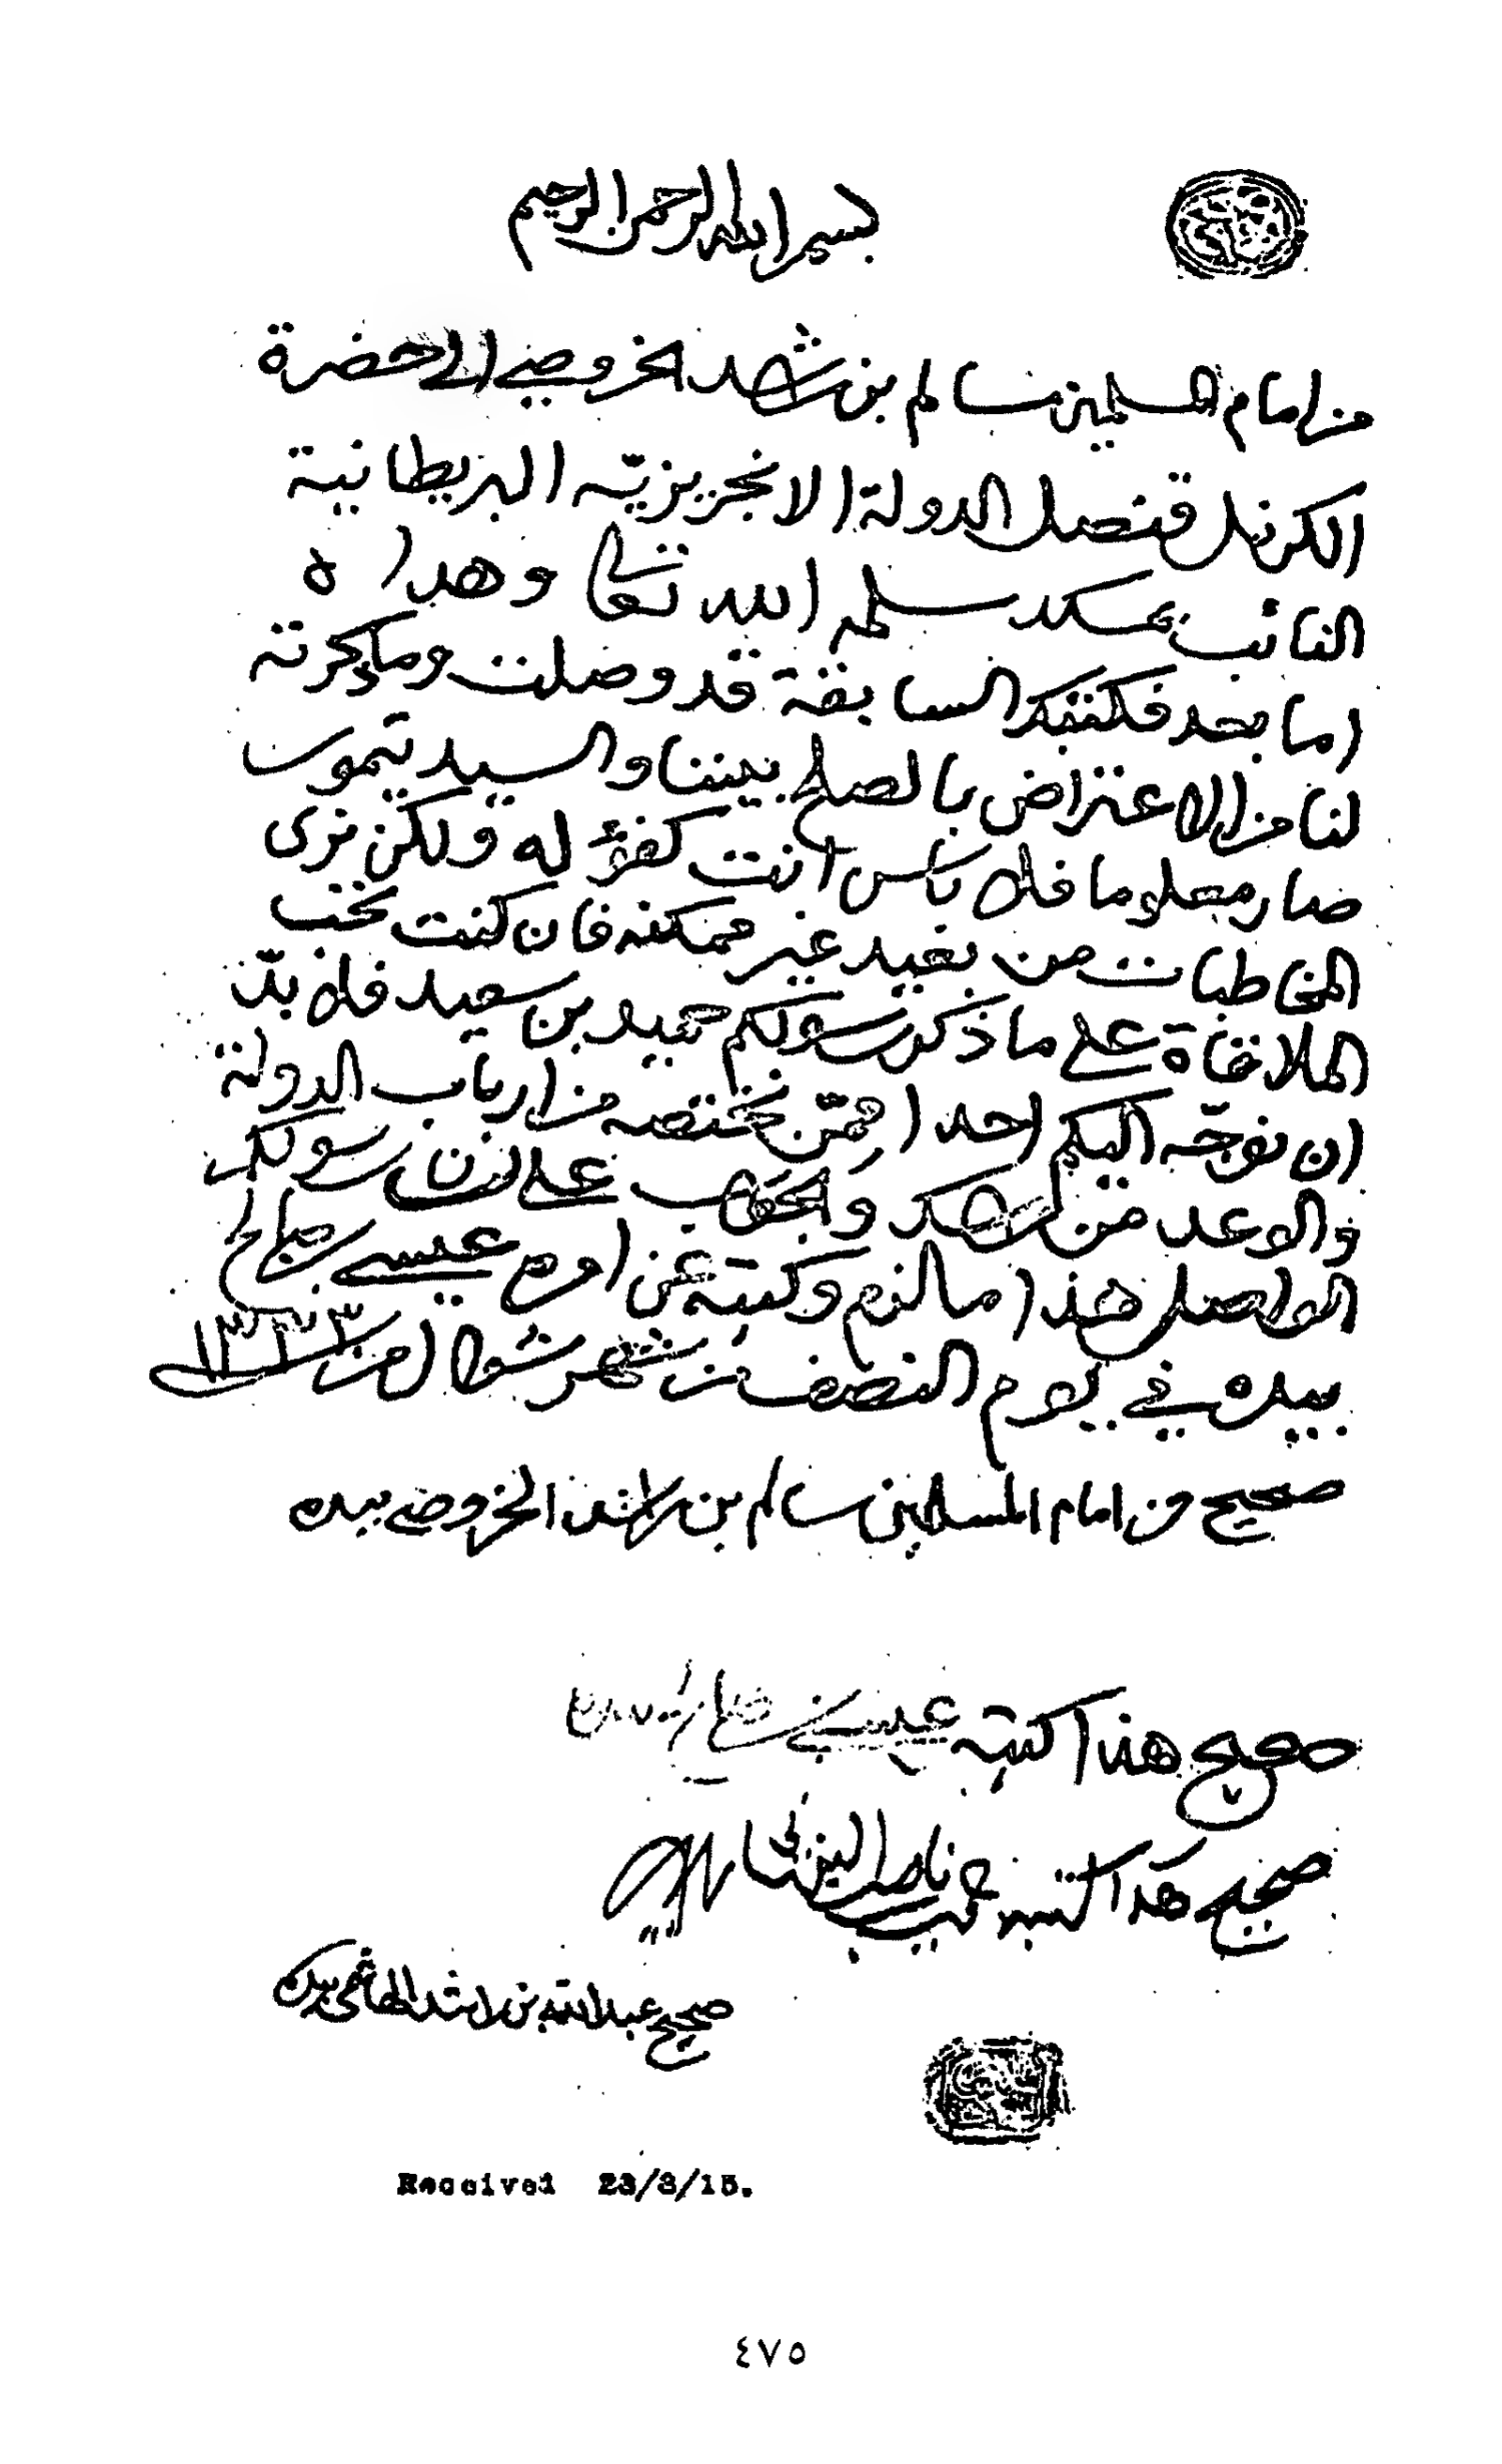 بسم الله الرحمن الرحيم
من امام المسلمين سالم بن راشد الخروصي الى حضرة
الكرنل قنصل الدولة الانجريزيّه البريطانية
النائب بمسكد سلمه الله تعالى وهداه
اما بعد فكتبك السابقة قد وصلت وما ذكرته
لنا من الاعتراض بالصلح بيننا والسيد تيمور
صار معلوما فلا باس انت كفؤ له ولكن نرى
المخاطبات من بعيد غير ممكنه فان كنت تحب
الملاقاة على ما ذكر رسولكم حميد بن سعيد فلا بدّ
ان نوجّه اليكم احدا ممّن نختصه من ارباب الدولة
والوعد من والجواب على لسان رسولك
الواصل هذا ما لزم وكتبته عن امره عيسى بن صالح
بيده في يوم النصف من شهر شوال من سنة ١٣٣٣
صحيح من امام المسلمين سالم بن راشد الخروصي بيده
صحيح هذا كتبه عيسى بن صالح بيده
صحيح هذا كتبه بن ناصر
صحيح عبدالله بن راشد الهاشمي بيده
Received 23/8/15.
٤٧٥